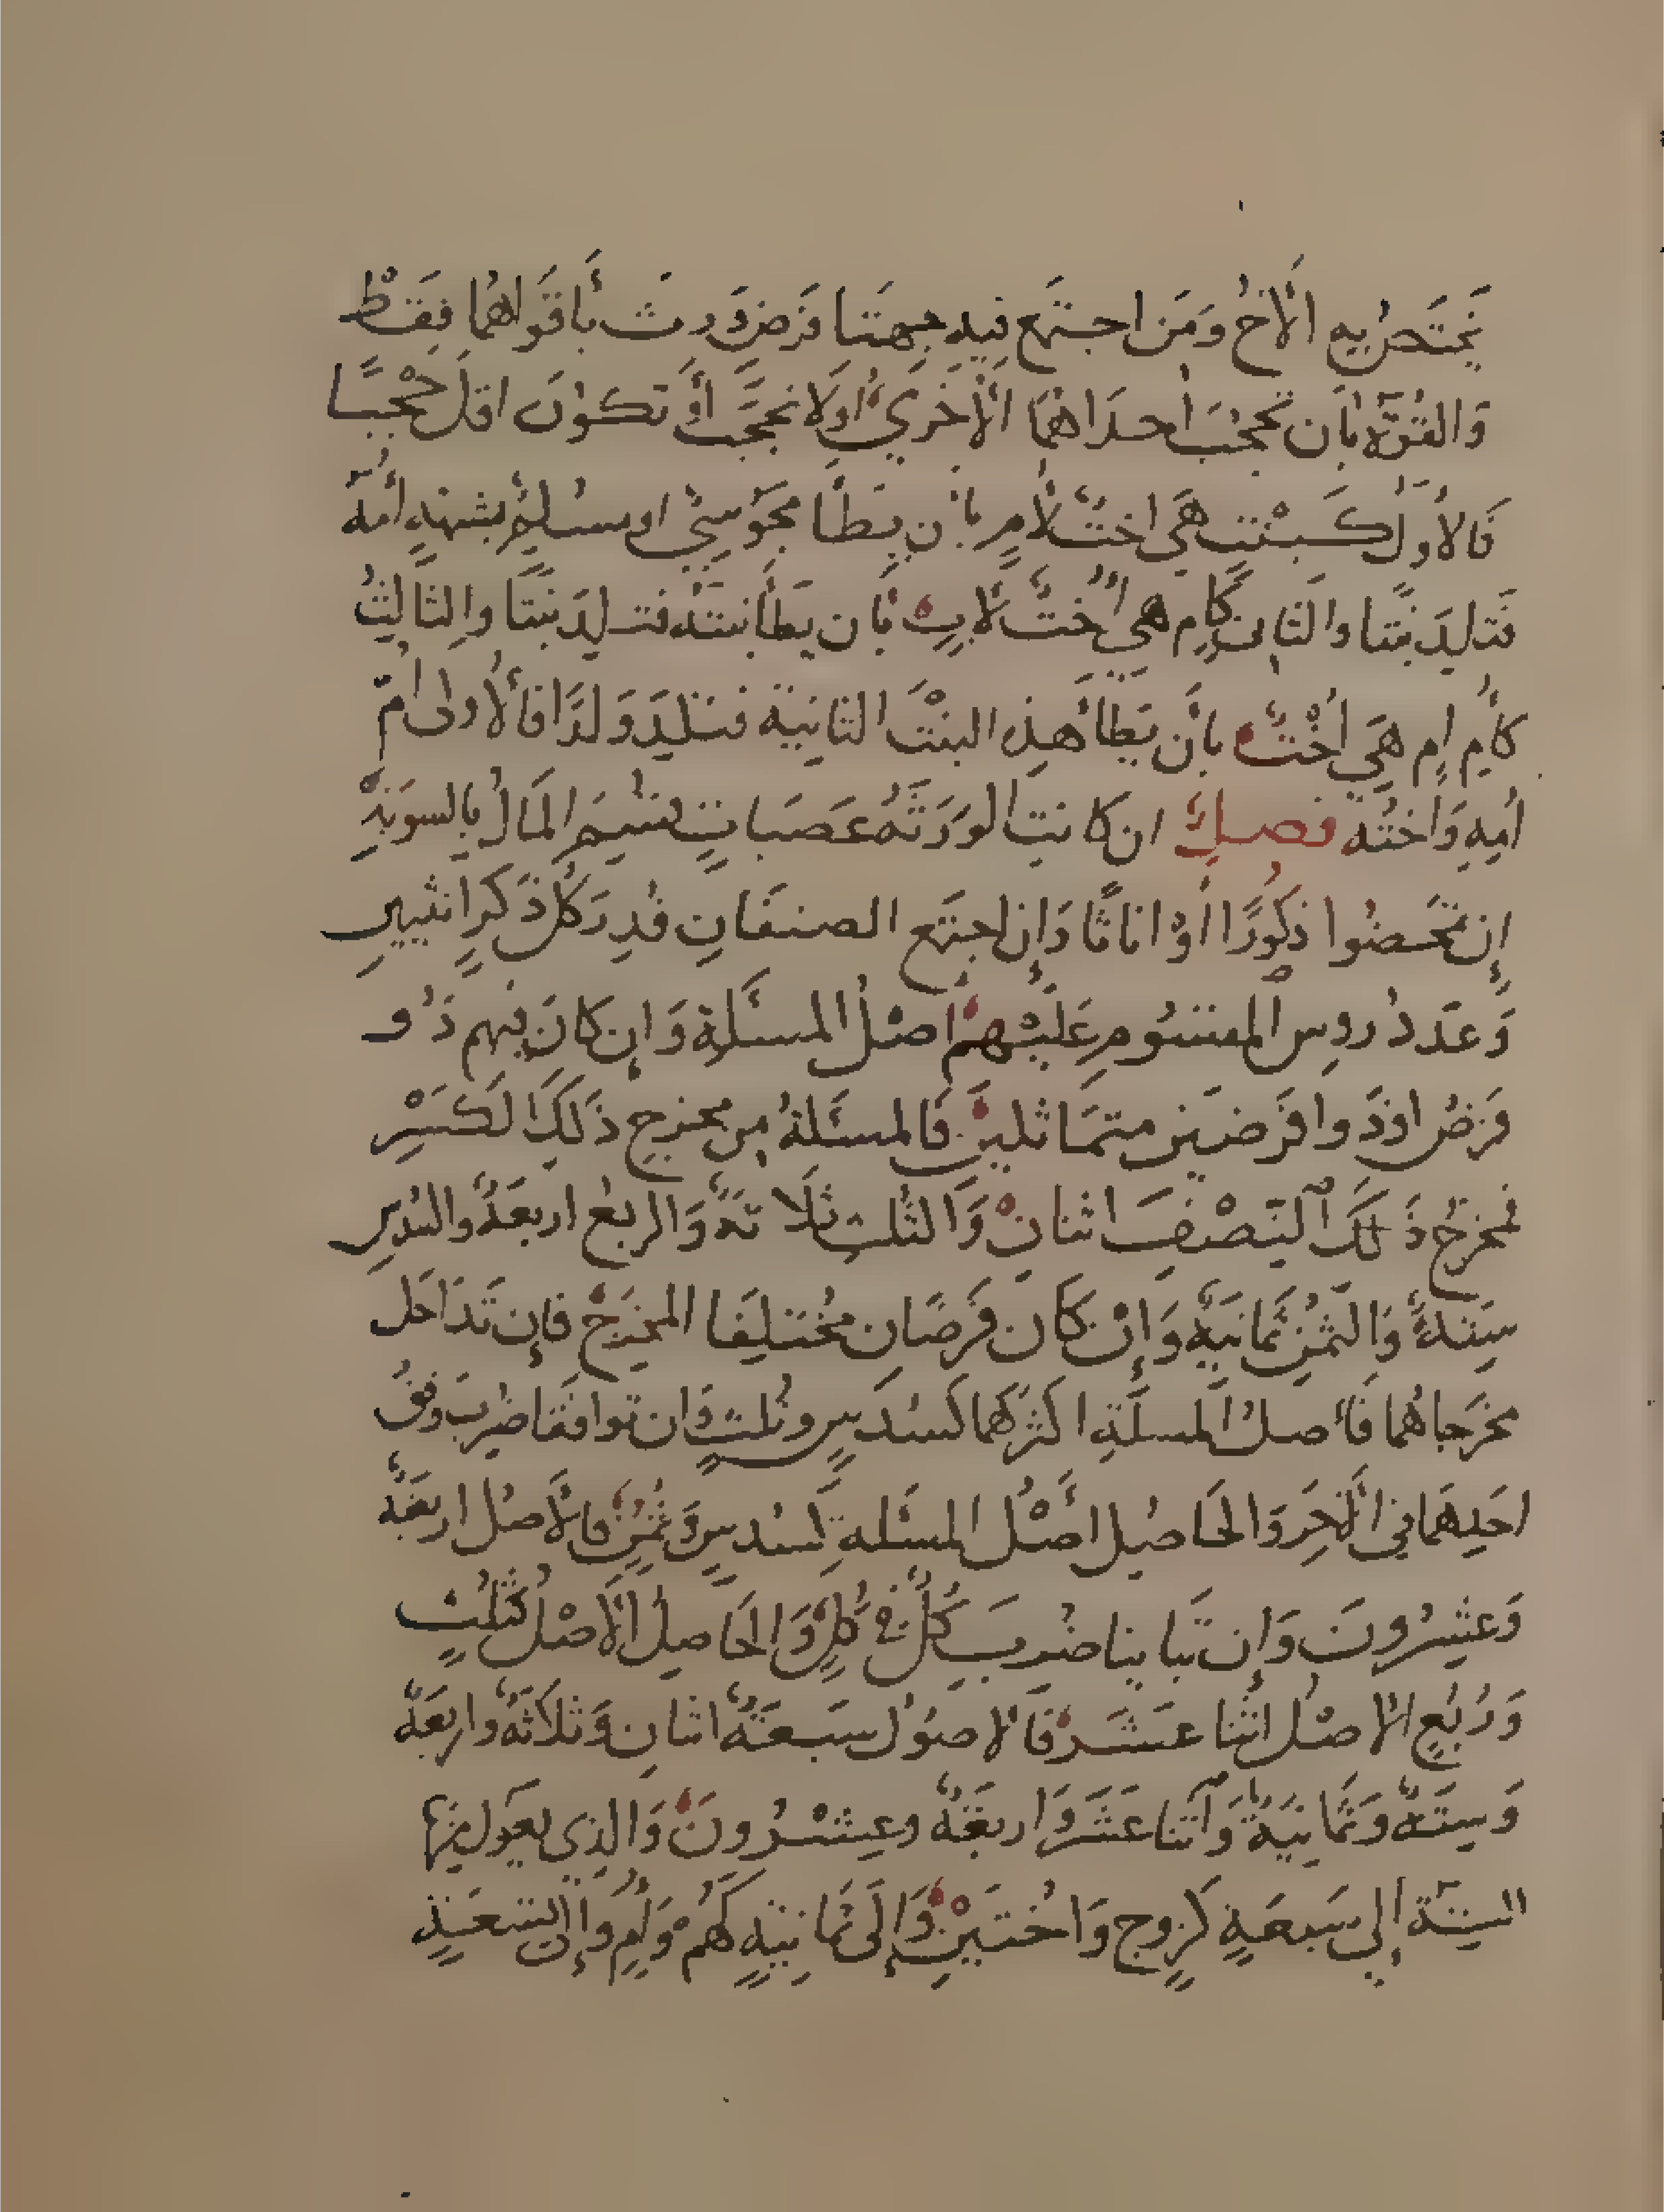 يَختَصُّ بِهِ الاَخُ وَمَن اجتمَع فِيهِ جِهتَا فَرَضٍ وَرث بأقوَاهُمَا فقَطْ
وَالقُوَّة بأن تحجبَ احدَاهمَا الأخرَي اولا تحجَبَ أوَ تكوُنَ اقلَ حَجْبًا
فَالأوَلُ كَبنْتٍ هَي اختٌ لامٍ بأن يَطَأ مجَوُسِيٌ او مسُلِمٌ بشبهَةٍ أمَّهُ
فتَلِدَ بنتًا والثاني كأم هي أختٌ لابٍ بأن يَطَأ بنتَه فتلِدَ بنتًا والثالثُ
كأم ام هَي أُخْتٌ بأن يَطَأ هَذِه البنْتَ الثانِيَة فتلِدَ وَلدًا فالأولى أمُّ
أمِهِ وَاختُه فصلٌ ان كانتِ الورَثَهُ عَصَبات قُسِمَ المَالُ بالسويَةِ
إن تَمحَضُوا ذكُورًا أوْ اناثًا وَإن اجتمَع الصنفَانِ قُدِرَ كلُ ذكَرٍ انثيينِ
وَعدَدُ رُوسِ المقسُومِ عَلَيْهِمْ اصْلُ المسئَلةِ وَإن كانَ فِيهِم ذُو
فَرَضٍ اوْ ذَوا فَرَضَين متمَاثلينِ فَالمسئَلةُ مِن مخرَجِ ذَلِكَ الكَسْرِ
فمخرجُ ذَلكَ النِصْفِ اثنانْ وَالثُلثِ ثلَاثَهٌ وَالربعُ اربَعَةٌ والسُدسِ
سِتةٌ وَالثمُنِ ثمَانيَةٌ وَإنْ كَان فَرَضَانِ مُختلِفَا المخرَجْ فإن تَدَاخَل
مخرَجاهُما فَأصلُ المسئلَةِ اكثرُهُما كسُدَسٍ وثُلثٍ وَان توافقَا ضُرِبَ وفقُ
احَدِهمَا في الآخِر وَالحَاصِلِ اصْلُ المسئَلةِ كسُدسٍ وَثُمُنٍ فالأصلُ اربعَةٌ
وَعشِرُونَ وَإن تَباينا ضُرِبَ كلٌ في كلٍ وَالحَاصِلُ الأصْلُ كثلُثٍ
وَرُبُعٍ الاصْلُ اثنا عشَرَ فَالاصُوُل سَبعَةٌ اثنانِ وَثلَاثَةٌ وَاربعَةٌ
وَسِتَةٌ وَثَمانِيَةٌ وَاثنا عَشَرَ وَاربعَةٌ وعِشْرُونَ وَالذِي يعُوَلُ مِنهَا
السِتَة إلى سَبعَةٍ كزوج وَاخُتَيْنِ وَإلَى ثمَانيَةٍ كهُمْ وَأُمٍ وَإلى تِسْعَةٍ